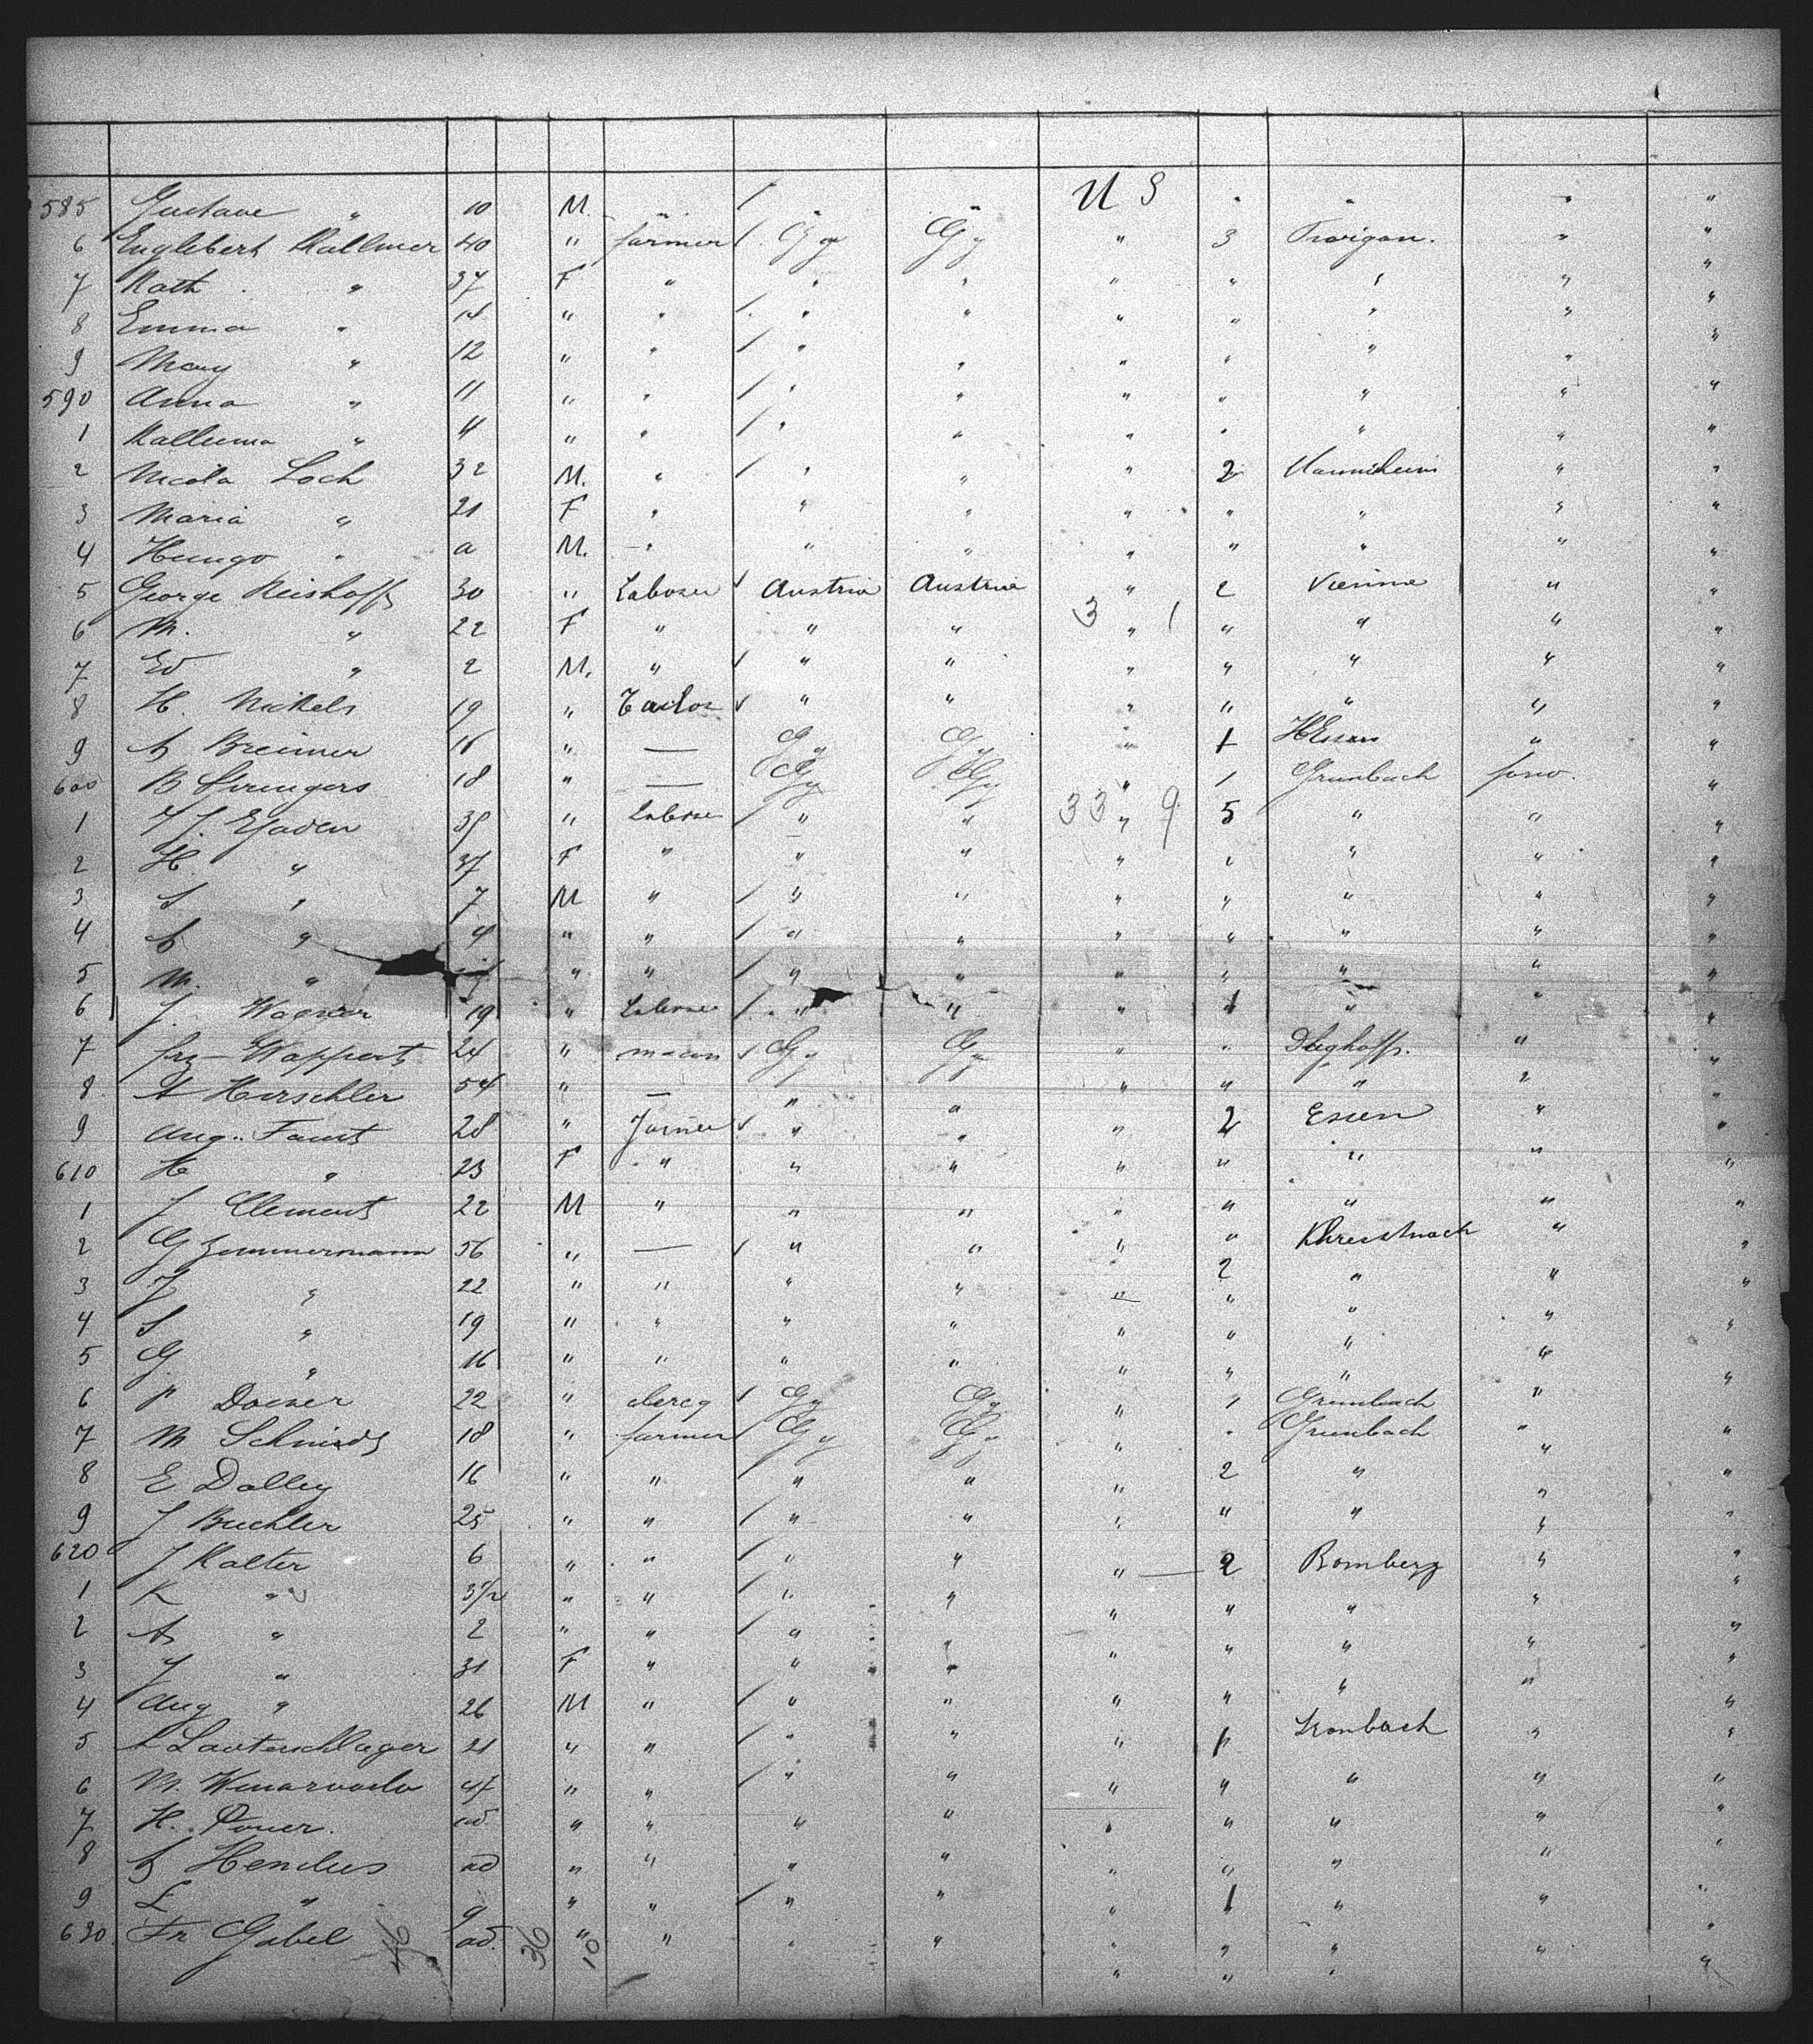 U S
585 Gustave " 10 M. " " " " " " "
6 Englebert Kallmer 40 " farmer Gy Gy " 3 " "
7 Kath " 37 F " " " " " " " "
8 Emma " 14 " " " " " " " " "
9 Mary " 12 " " " " " " " " "
590 Anna " 11 " " " " " " " " "
1 " 4 " " " " " " " " "
2 Nicola Loch 32 M. " " " " 2 Mannheim " "
3 Maria " 21 F " " " " " " " "
4 Hungo " a M. " " " " " " " "
5 George Reishoff 30 " Laborer Austria Austria " 2 Vienna " "
6 M. " 22 F " " " 3 " 1 " " " "
7 Ed " 2 M. " " " " " " " "
8 H. Nickels 19 " Tailor " " " " " " "
9 A Breimer 16 " — Gy Gy " 1 " "
600 B Strengers 18 " — Gy Gy " 1 Grunbach forw. "
1 39 " Labore " " 33 " 9 5 " " "
2 H. " 37 F " " " " " " " "
3 S " 7 M " " " " " " " "
4 A " 4 " " " " " " " " "
5 M. " " " " " " " " " "
6 J. Wagner 19 " Laborer " " " 1 " " "
7 Wappert 24 " mason Gy Gy " " " "
8 A Herschler 54 " — " " " " " " "
9 Aug. Faust 28 " " " " 2 Essen " "
610 H " 23 F " " " " " " " "
1 J Clement 22 M " " " " " " " "
2 G Zemmermann 56 " — " " " " Khreistnach " "
3 J " 22 " " " " " 2 " " "
4 S " 19 " " " " " " " " "
5 G. " 16 " " " " " " " " "
6 P Doeser 22 " clercq Gy Gy " 1 Grunbach "
7 M Schmidt 18 " farmer Gy Gy " " Grunbach " "
8 E Dalley 16 " " " " " 2 " " "
9 J Buchler 25 " " " " " " " " "
620 J Kalter 6 " " " " " 2 Bomberg " "
1 K " 3/12 " " " " " " " " "
2 A " 2 " " " " " " " " "
3 J " 31 F " " " " " " " "
4 Aug " 26 M " " " " " " " "
5 A Lauterschlager 21 " " " " " 1 Kronbach " "
6 M. 47 " " " " " " " " "
7 H. ad " " " " " " " " "
8 A Hendus ad " " " " " " " " "
9 L " 9 " " " " " 1 " " "
630 Fr Gabel 46 ad. 36 " 10 " " " " " " " "